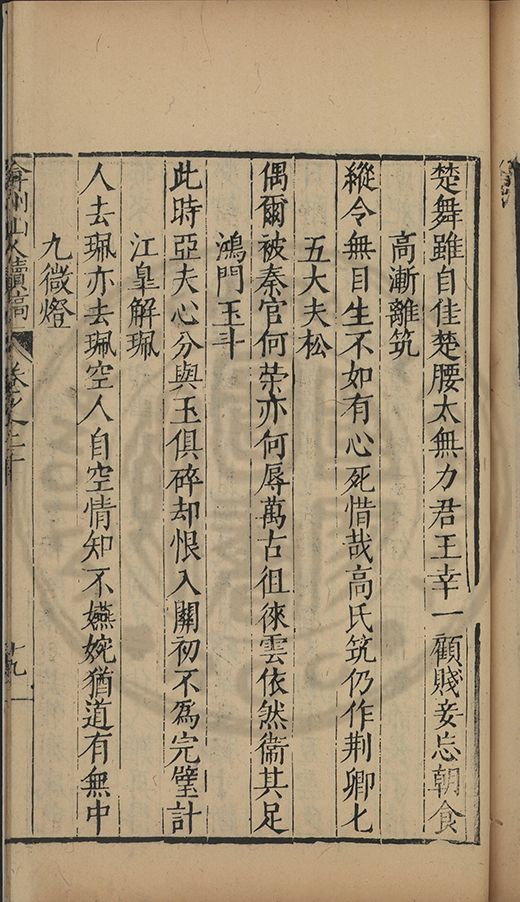 楚舞雖自佳楚腰太無力君王幸一顧賤妾忘朝食
高漸離筑
縱令無目生不如有心死惜哉高氏筑仍作荆卿匕
五大夫松
偶爾被秦官何荣亦何辱萬古徂徠雲依然衞其足
鴻門玉斗
此時亞夫心分與玉俱碎却恨入關初不爲完璧計
江臯解珮
人去珮亦去珮空人自空情知不嬿婉猶道有無中
九微燈
山人續稿
卷之二十
十九